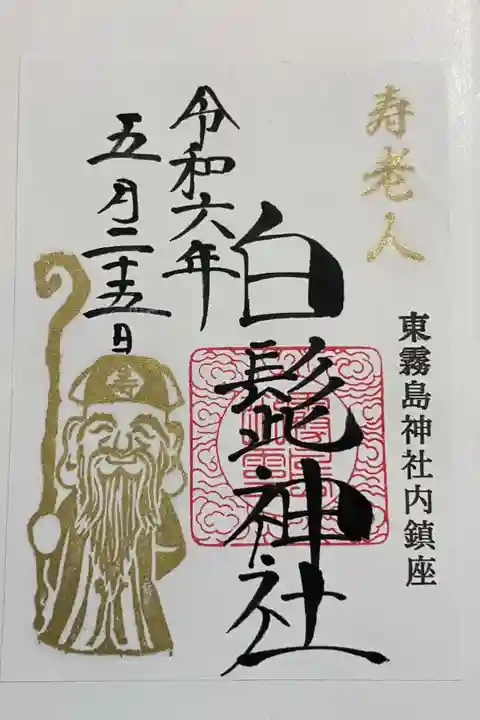 寿老人
東霧島神社内鎮座
白髭神社
令和六年
五月二十五日
寿